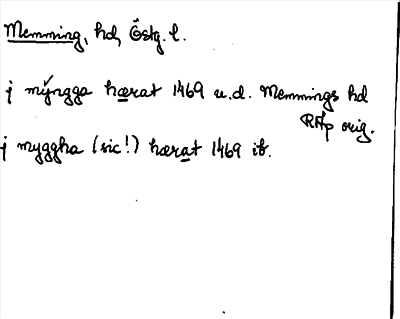 Memming, hd, Östg. l.
j mÿngga hærat 1469 u.d. Memmings hd
RAp orig.
j myggha (sic!) hærat 1469 ib.